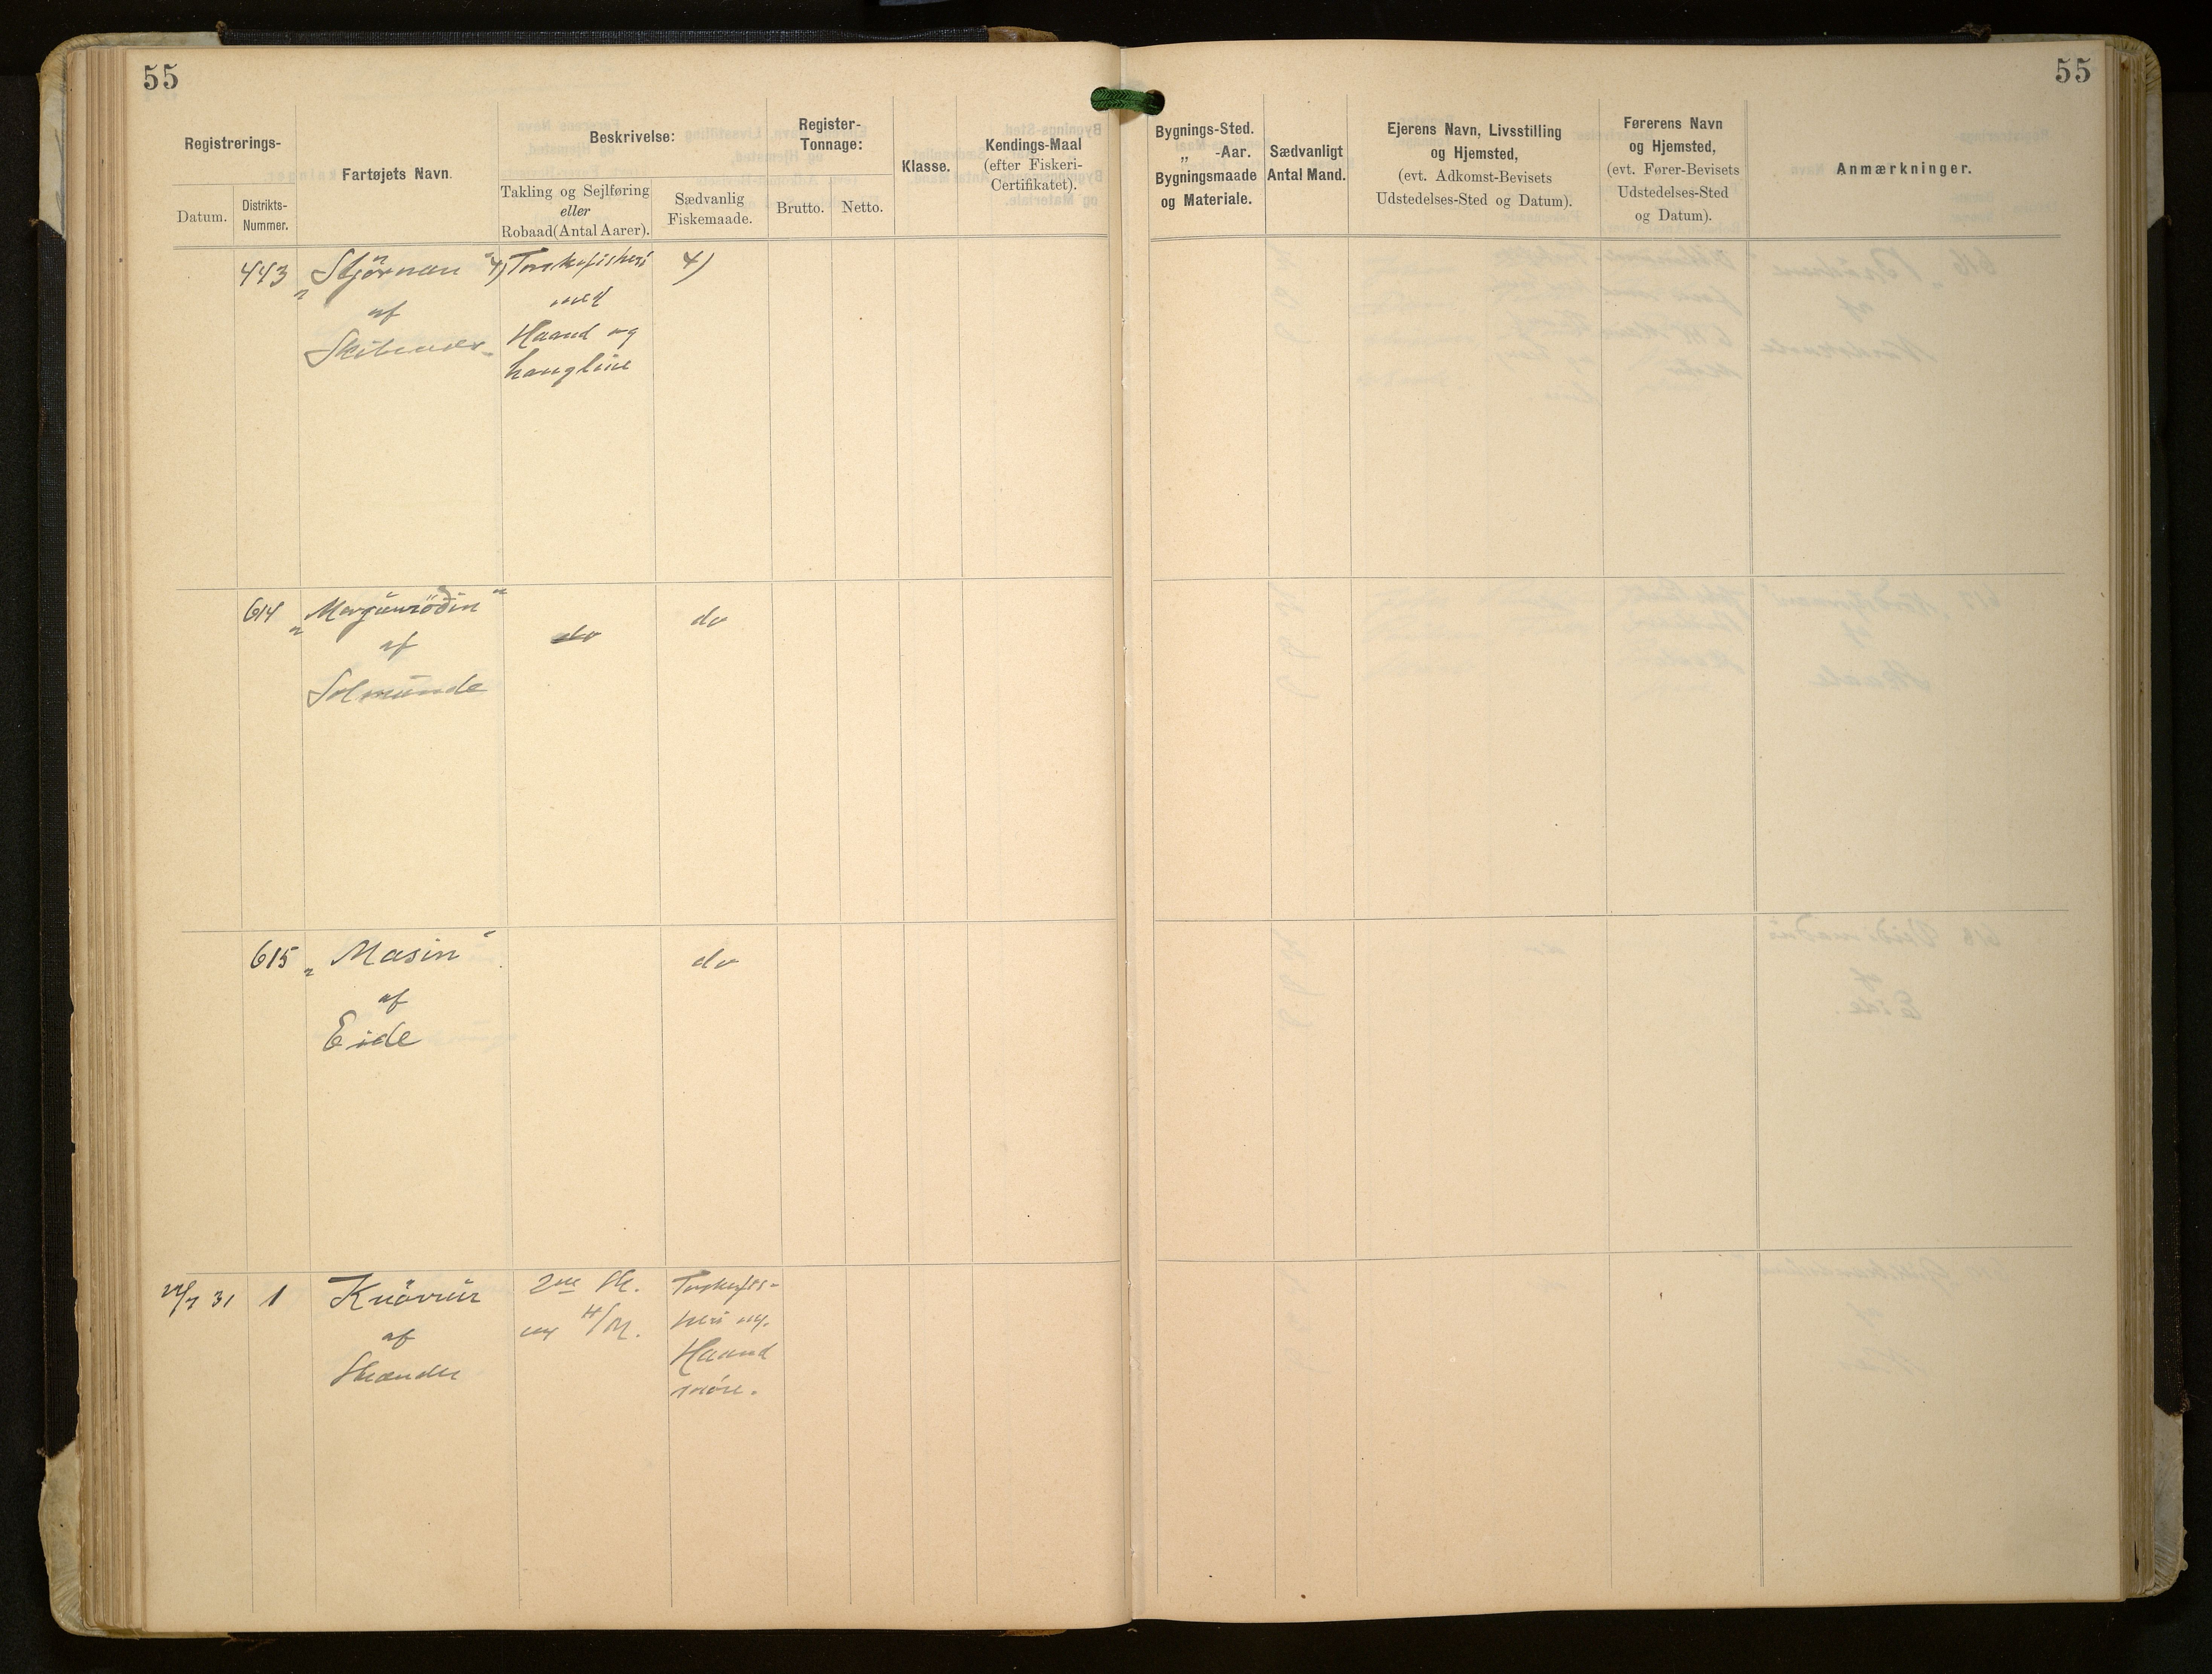 55
55
Registrerings-
Datum.
Distrikts-
Nummer.
Fartøjets Navn.
Beskrivelse:
Takling og Sejlføring
eller
Robaad(Antal Aarer).
Sædvanlig
Fiskemaade.
Register-
Tonnage:
Brutto.
Netto.
Klasse.
Kendings-Maal
(efter Fiskeri-
Certifikatet).
Bygnings-Sted.
„ -Aar.
Bygningsmaade
og Materiale.
Sædvanligt
Antal Mand.
Ejerens Navn, Livsstilling
og Hjemsted,
(evt. Adkomst-Bevisets
Udstedelses-Sted og Datum).
Førerens Navn
og Hjemsted,
(evt. Fører-Bevisets
Udstedelses-Sted
og Datum).
Anmærkninger.
443
„Stjørnan"
af
4) Torskefiskeri
med
Haand og
Langline
4)
614
„Morgunroðin"
af
Solmunde
do
do
615
„Masin"
af
Eide
do
31
1
Knövur
af
Skaader
2m Sk.
m/ H/M.
Torskefis-
keri m/.
Haand
snöre.